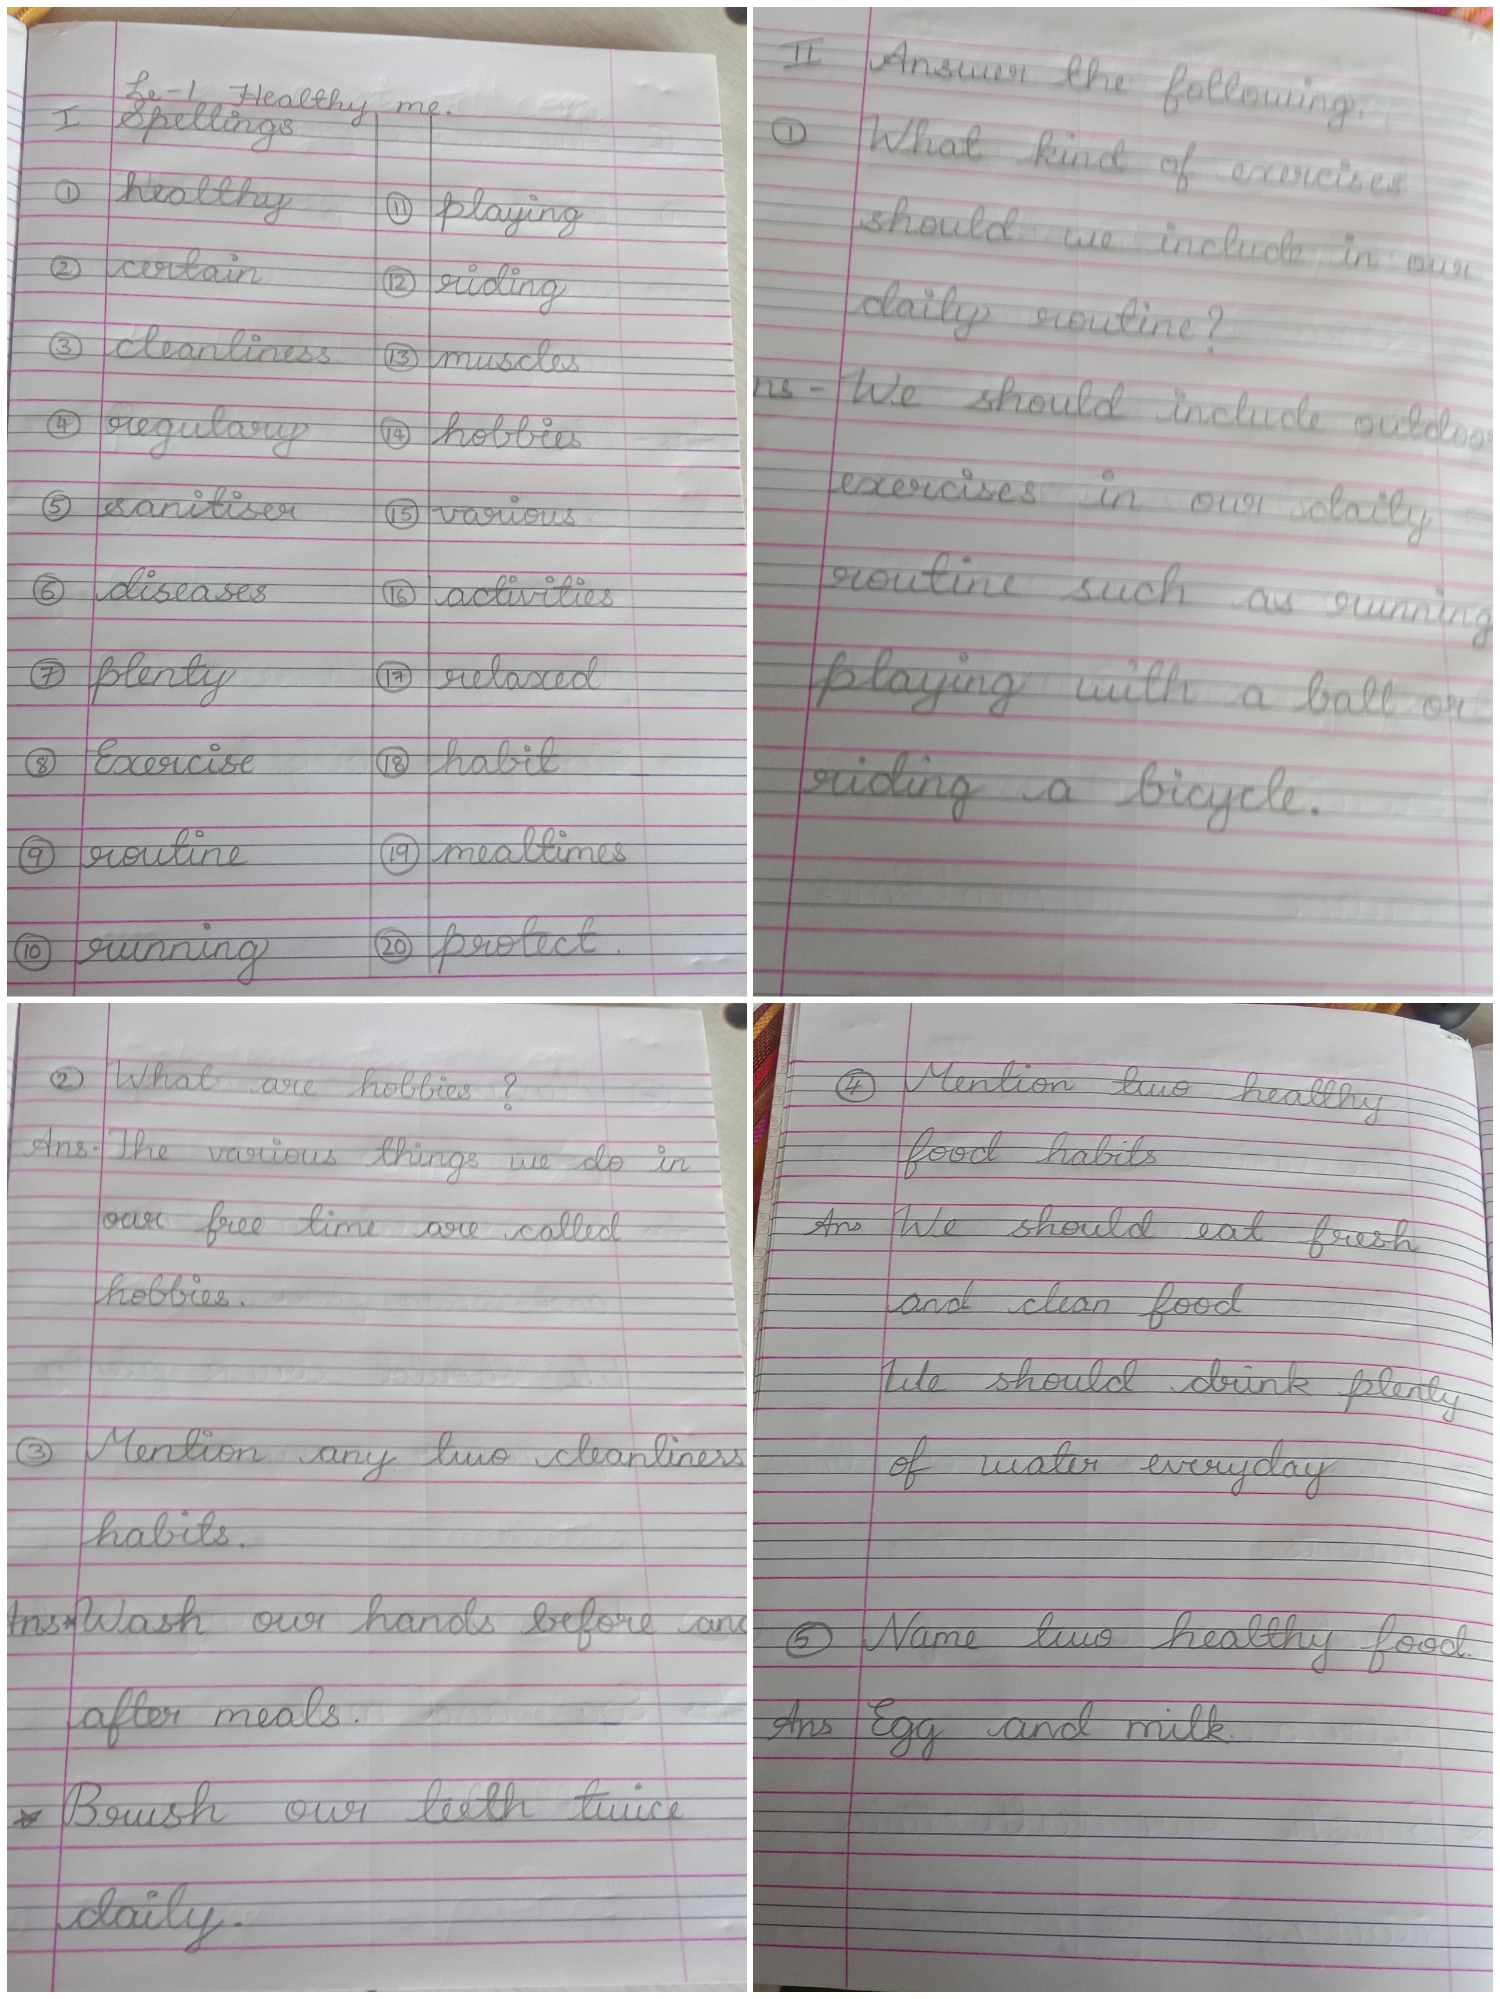 Le-1 Healthy me.
I Spellings
① healthy
② certain
③ cleanliness
④ regulary
⑤ sanitiser
⑥ diseases
⑦ plenty
⑧ Exercise
⑨ routine
⑩ running
⑪ playing
⑫ riding
⑬ muscles
⑭ hobbies
⑮ various
⑯ activities
⑰ relaxed
⑱ habit
⑲ mealtimes
⑳ protect.
II Answer the following.
① What kind of exercises
should we include in our
daily routine?
ns - We should include outdoo
exercises in our daily
routine such as running
playing with a ball or
riding a bicycle.
② What are hobbies?
Ans- The various things we do in
our free time are called
hobbies.
③ Mention any two cleanliness
habits.
Ans * Wash our hands before and
after meals.
* Brush our teeth twice
daily.
④ Mention two healthy
food habits
Ans We should eat fresh
and clean food
We should drink plenty
of water everyday
⑤ Name two healthy food.
Ans Egg and milk.